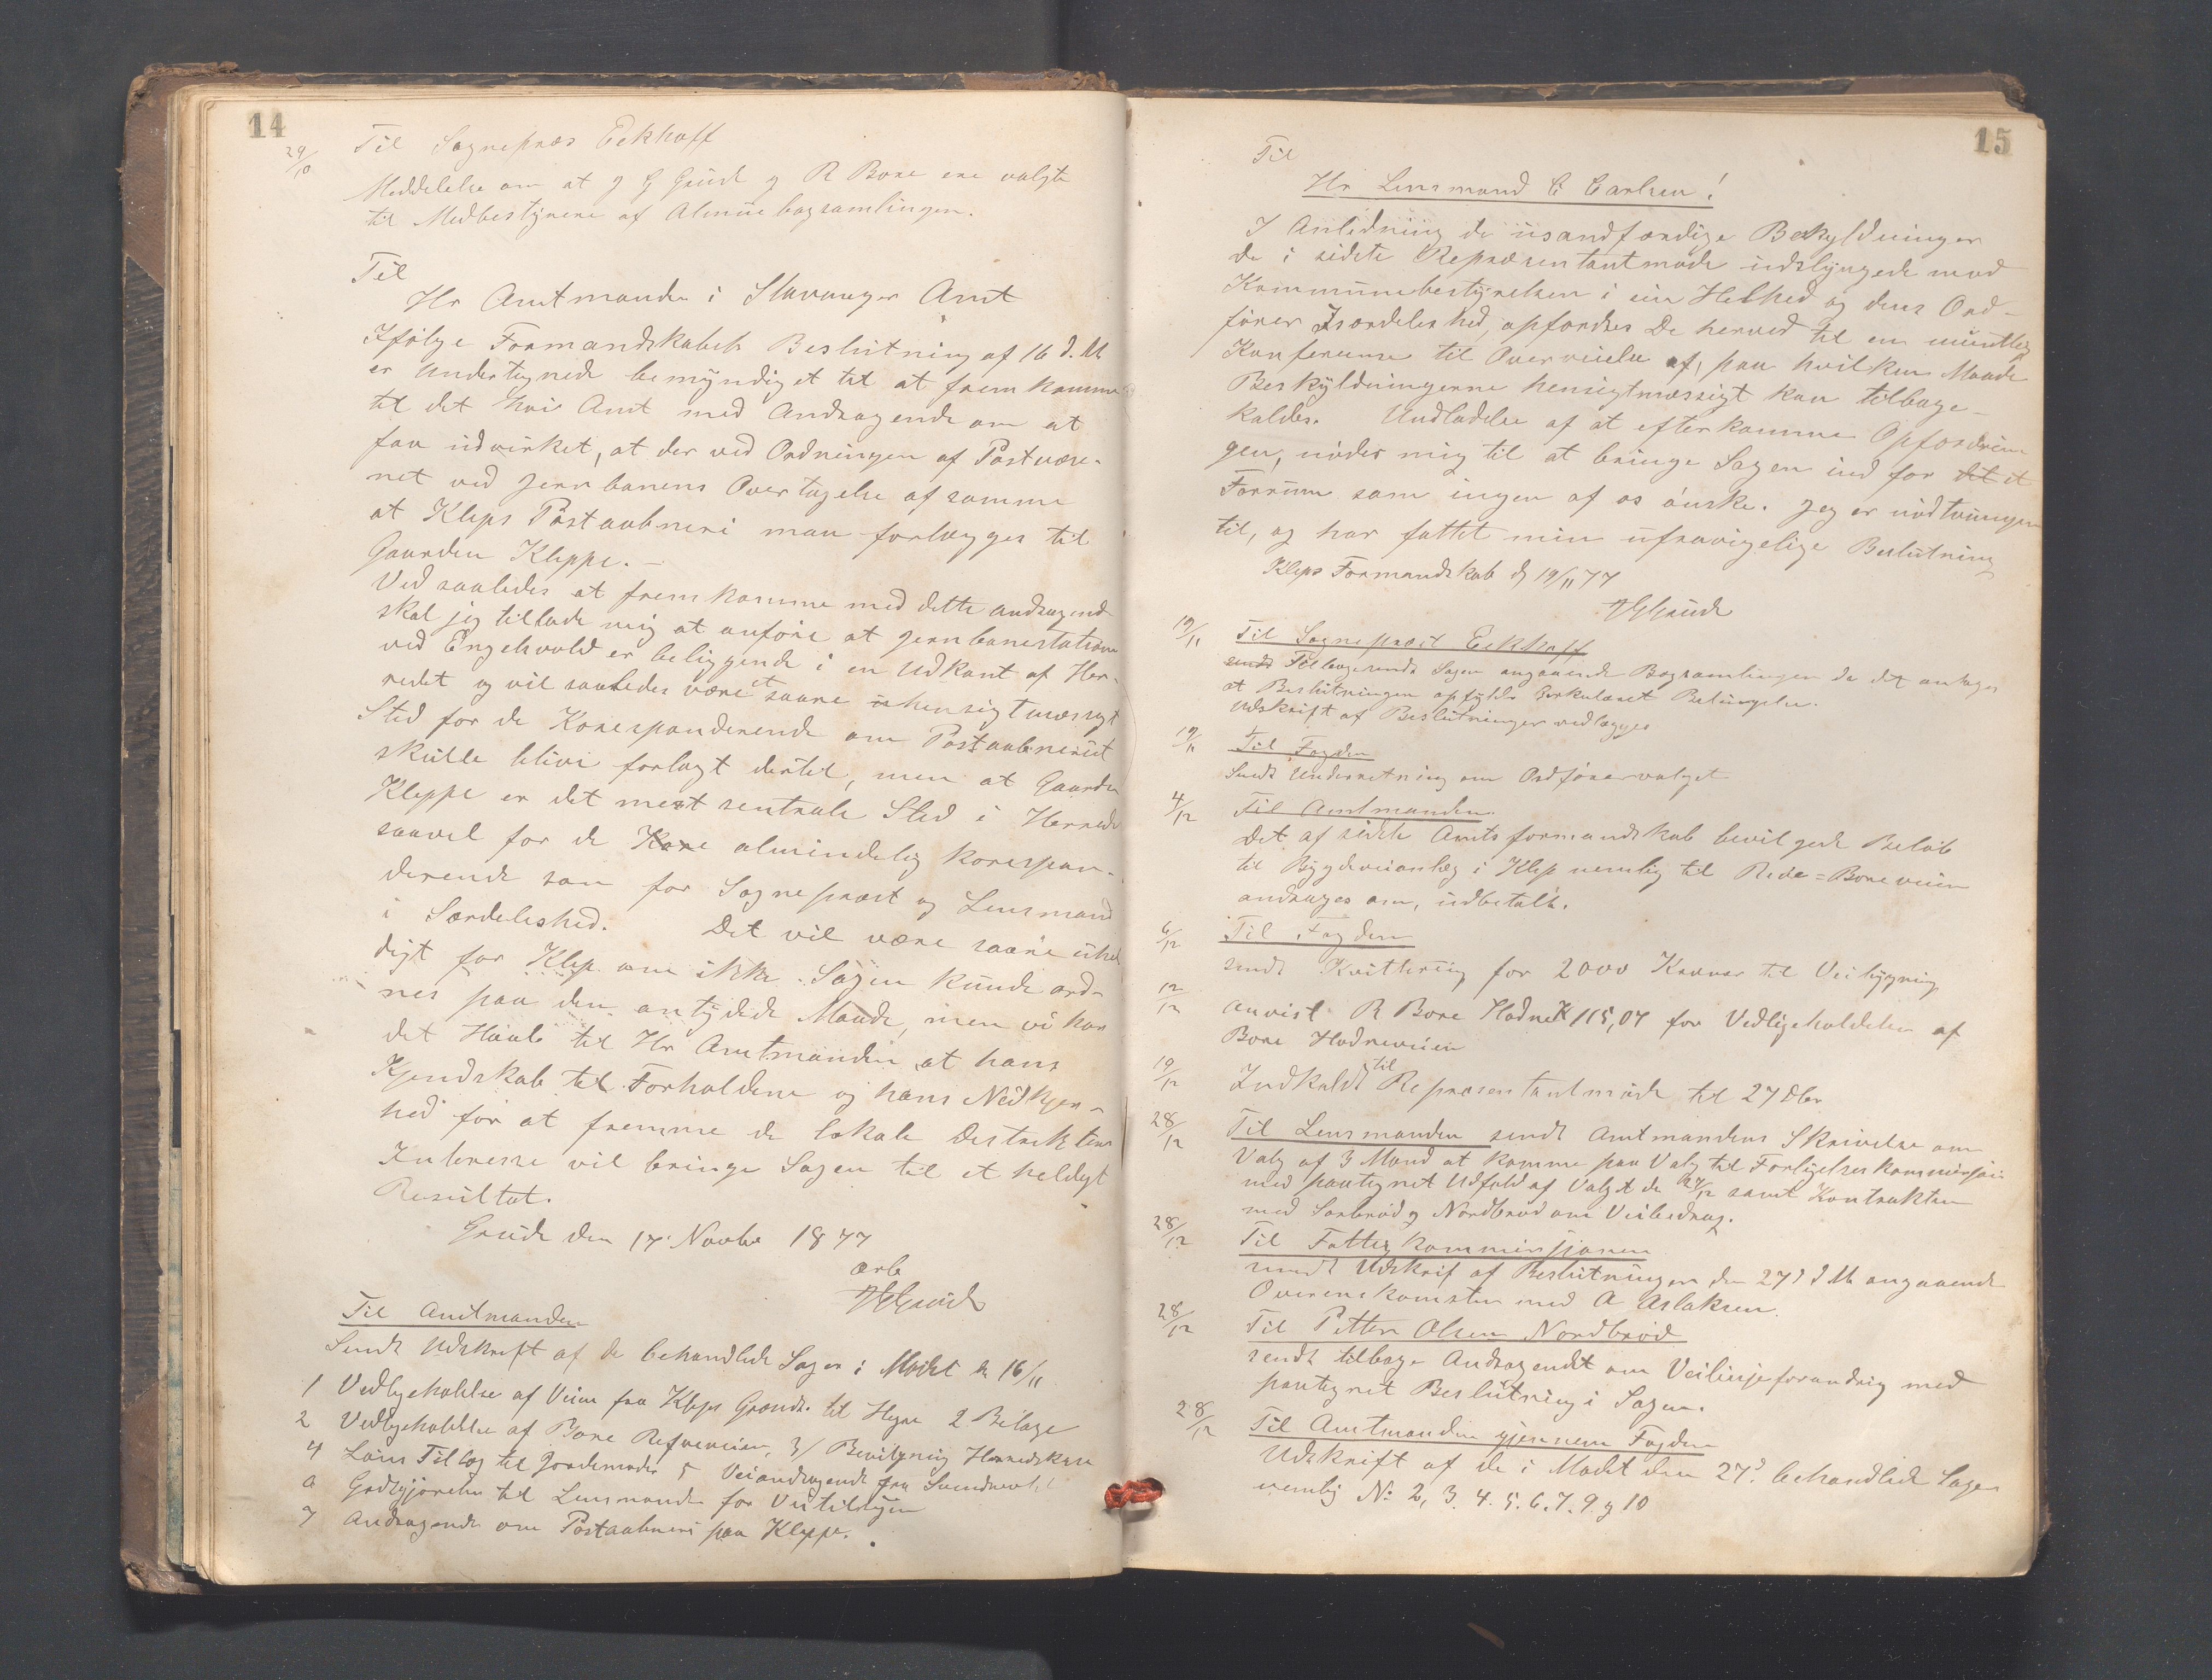 14
29/10
Til Sognepræs Eckhoff
Meddelelse om at J G Grude og R Bore ere valgte
til Medbestyrere af Almue bogsamlingen.
Til
Hr Amtmanden i Stavanger Amt
Ifølge Formandskabets Beslutning af 16 d. M
er Undertegnede bemyndiget til at fremkomme
til det høie Amt med Andragende om at
faa udvirket, at der ved Ordningen af Postvæse-
net ved Jernbanens Overtagelse af samme
at Kleps Postaabneri maa forlægges til
Gaarden Kleppe. -
Ved saaledes at fremkomme med dette andragend
skal jeg tillade mig at anføre at Jernbanestation
ved Engelsvold er beliggende i en Udkant af Her-
redet og vil saaledes være et saare uhensigtmæssigt
Sted for de Korespanderende om Postaabneriet
skulde blive forlagt dertil, men at Gaarden
Kleppe er det mest sentrale Sted i Herred
saavel for de Kore almindelig korespon-
derende som for Sognepræst og Lensmand
i Særdeleshed. Det vil være saare uhel
digt for Klep om ikke Sagen kunde ord-
nes paa den antydede Maade, men vi har
det Haab til Hr Amtmanden at hans
Kjendskab til Forholdene og hans Nidkjær-
hed for at fremme de lokale Destrikters
Interesse vil bringe Sagen til et heldigt
Resultat.
Grude den 17 Novbr 1877
ærb
JGGrude
Til Amtmanden
Sendt Udskrift af de behandlede Sager i Mødet den 16/11
1 Vedligeholdelse af Veien fra Kleps Grændse til Hegre 2 Bilage
2 Vedligeholdelse af Bore Refveien, 3/ Bevilgning Herredskasse
4 Løns Tillæg til Jordemoder 5 Veiandragende fra
6 Godtgjørelse til Lensmanden for Veitilsyn
7 Andragende om Postaabneri paa Kleppe.
15
Til
Hr Lensmand C Carlsen!
I Anledning de usandfærdige Beskyldninger
De i sidste Repræsentantmøde udslyngede mod
Kommunebestyrelsen i sin Helhed og dens Ord-
fører Isærdeleshed, opfordres De herved til en mundtlig
Konferense til Overveielse af, paa hvilken Maade
Beskyldningerne hensigtmæssigt kan tilbage-
kaldes. Undladelse af at efterkomme Opfordrin-
gen, nøder mig til at bringe Sagen ind for det et
Forrum som ingen af os ønske. Jeg er nødtvungen
til, og har fattet min ufravigelige Beslutning
Kleps Formandskab d 19/11 77
JGGrude
19/11
Til Sognepræst Eckhoff
sendt Tilbagesendt Sagen angaaende Bogsamlingen da det antages
at Beslutningen opfylder Cirkulæret Betingelse.
Udskrift af Beslutninger vedlægges
19/11
Til Fogden
Sendt Underretning om Ordførervalget
4/12
Til Amtmanden.
Det af sidste Amtsformandskab bevilgede Beløb
til Bygdeveianlæg i Klep nemlig til Reve=Boreveien
andrages om, udbetalt.
6/12
Til Fogden
sendt Kvittering for 2000 Kroner til Veibygning
12/12
anvist R Bore Hodne K 115,04 for Vedligeholdelse af
Bore Hodneveien
19/12
Indkaldt til Repræsentantmøde til 27 Dbr
28/12
Til Lensmanden sendt Amtmandens Skrivelse om
Valg af 3 Mænd at komme paa Valg til Forligelseskommisjon
med paategnet Udfald af Valget de 27/12 samt Kontrakten
med Sørbrød og Nordbrød om Veibidrag.
28/12
Til Fattigkommissjonen
sendt Udskrif af Beslutningen den 27d d M angaaende
Overenskomsten med A Aslaksen.
28/12
Til Petter Olsen Nordbrød
sendt tilbage Andragendet om Veilinjeforandrig med
paategnet Beslutning i Sagen.
28/12
Til Amtmanden gjennem Fogden
Udskrift af de i Mødet den 27d behandlede Sager
nemlig No 2, 3. 4. 5. 6. 7. 9. g 10